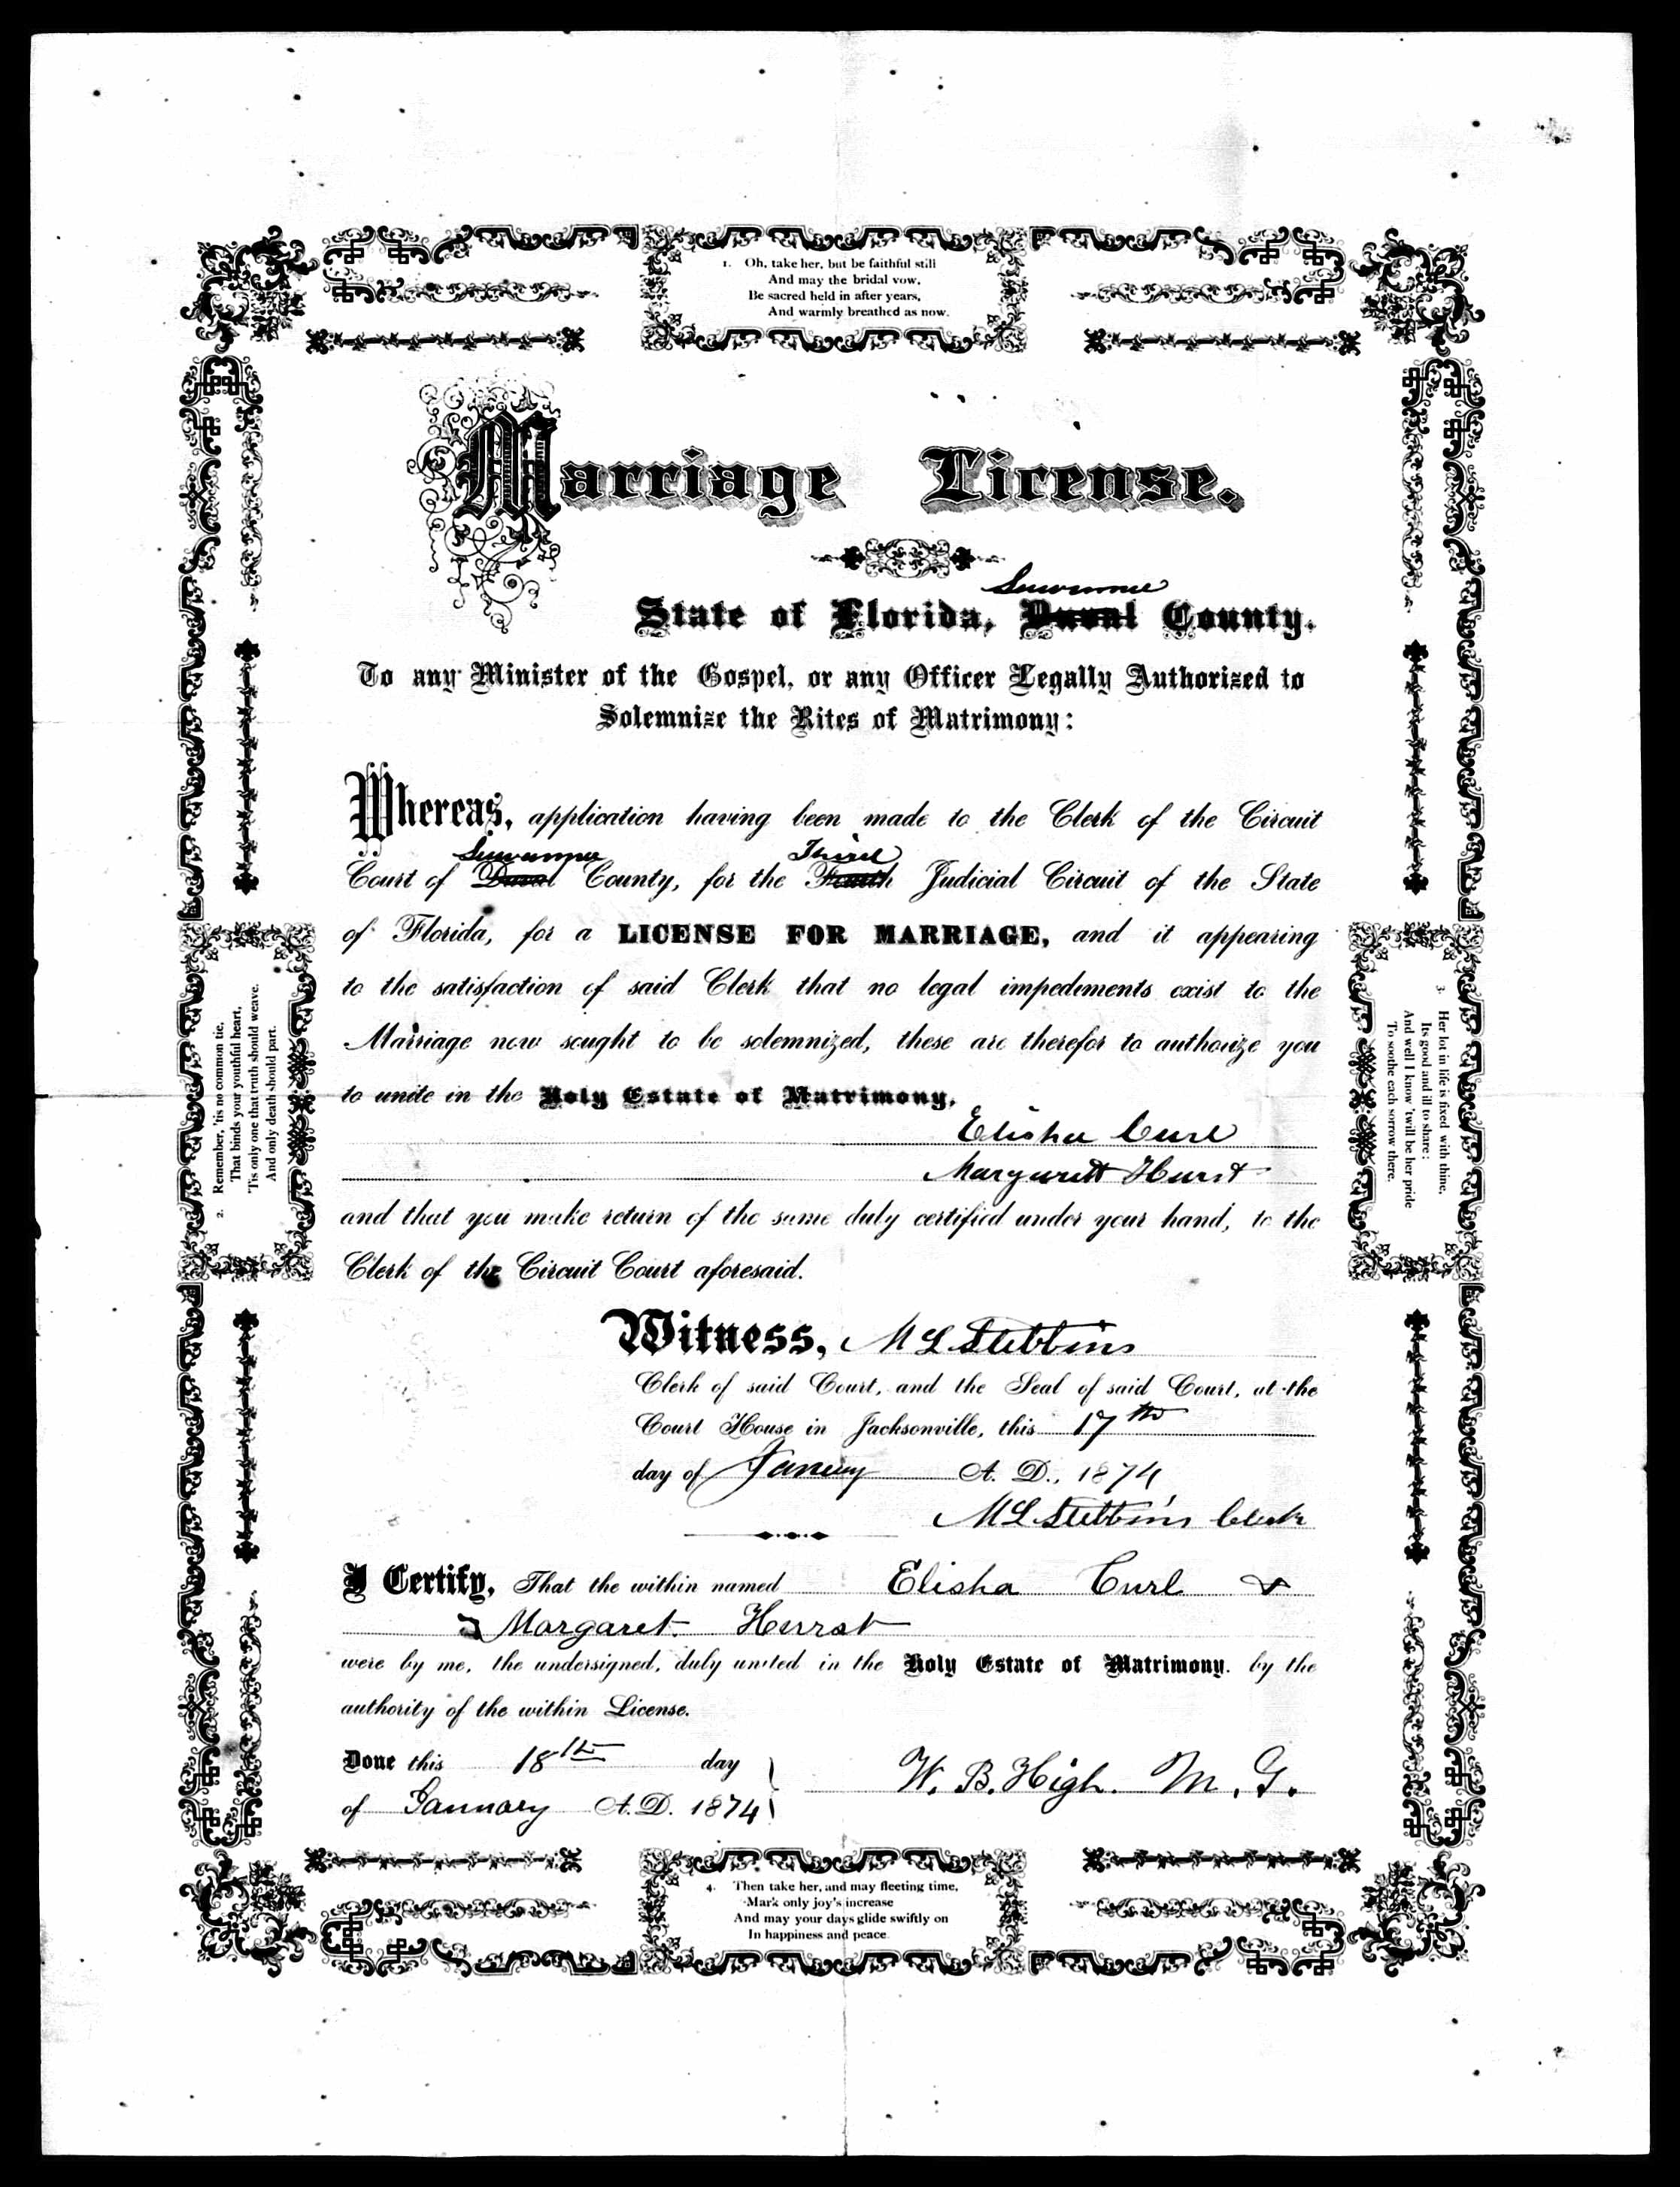 1. Oh, take her, but be faithful still
And may the bridal vow,
Be sacred held in after years,
And warmly breathed as now.
Marriage License.
Suwannee
State of Florida, Duval County.
To any Minister of the Gospel, or any Officer Legally Authorized to
Solemnize the Rites of Matrimony:
Whereas, application having been made to the Clerk of the Circuit
Suwannee Third
Court of Duval County, for the Fourth Judicial Circuit of the State
of Florida, for a LICENSE FOR MARRIAGE, and it appearing
to the satisfaction of said Clerk that no legal impediments exist to the
Marriage now sought to be solemnized, these are therefor to authorize you
to unite in the Holy Estate of Matrimony,
Elisha Curl
Margarett Hurst
and that you make return of the same duly certified under your hand, to the
Clerk of the Circuit Court aforesaid.
Witness, M L Stebbins
Clerk of said Court, and the Seal of said Court, at the
Court House in Jacksonville, this 17th
day of January A. D., 1874
M L Stebbins Clerk
I Certify, That the within named Elisha Curl &
Margaret Hurst
were by me, the undersigned, duly united in the Holy Estate of Matrimony, by the
authority of the within License.
Done this 18th day
of January A. D. 1874
W. B. High. M. G.
2. Remember, 'tis no common tie,
That binds your youthful heart,
'Tis only one that truth should weave,
And only death should part.
3. Her lot in life is fixed with thine,
Its good and ill to share;
And well I know 'twill be her pride
To soothe each sorrow there.
4. Then take her, and may fleeting time,
Mark only joy's increase
And may your days glide swiftly on
In happiness and peace.